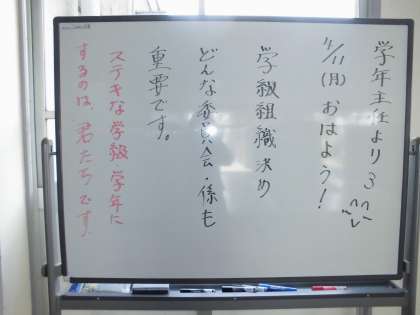 学年主任より 3
4/11(月) おはよう！
学級組織決め
どんな委員会・係も
重要です。
ステキな学級・学年に
するのは、君たちです。